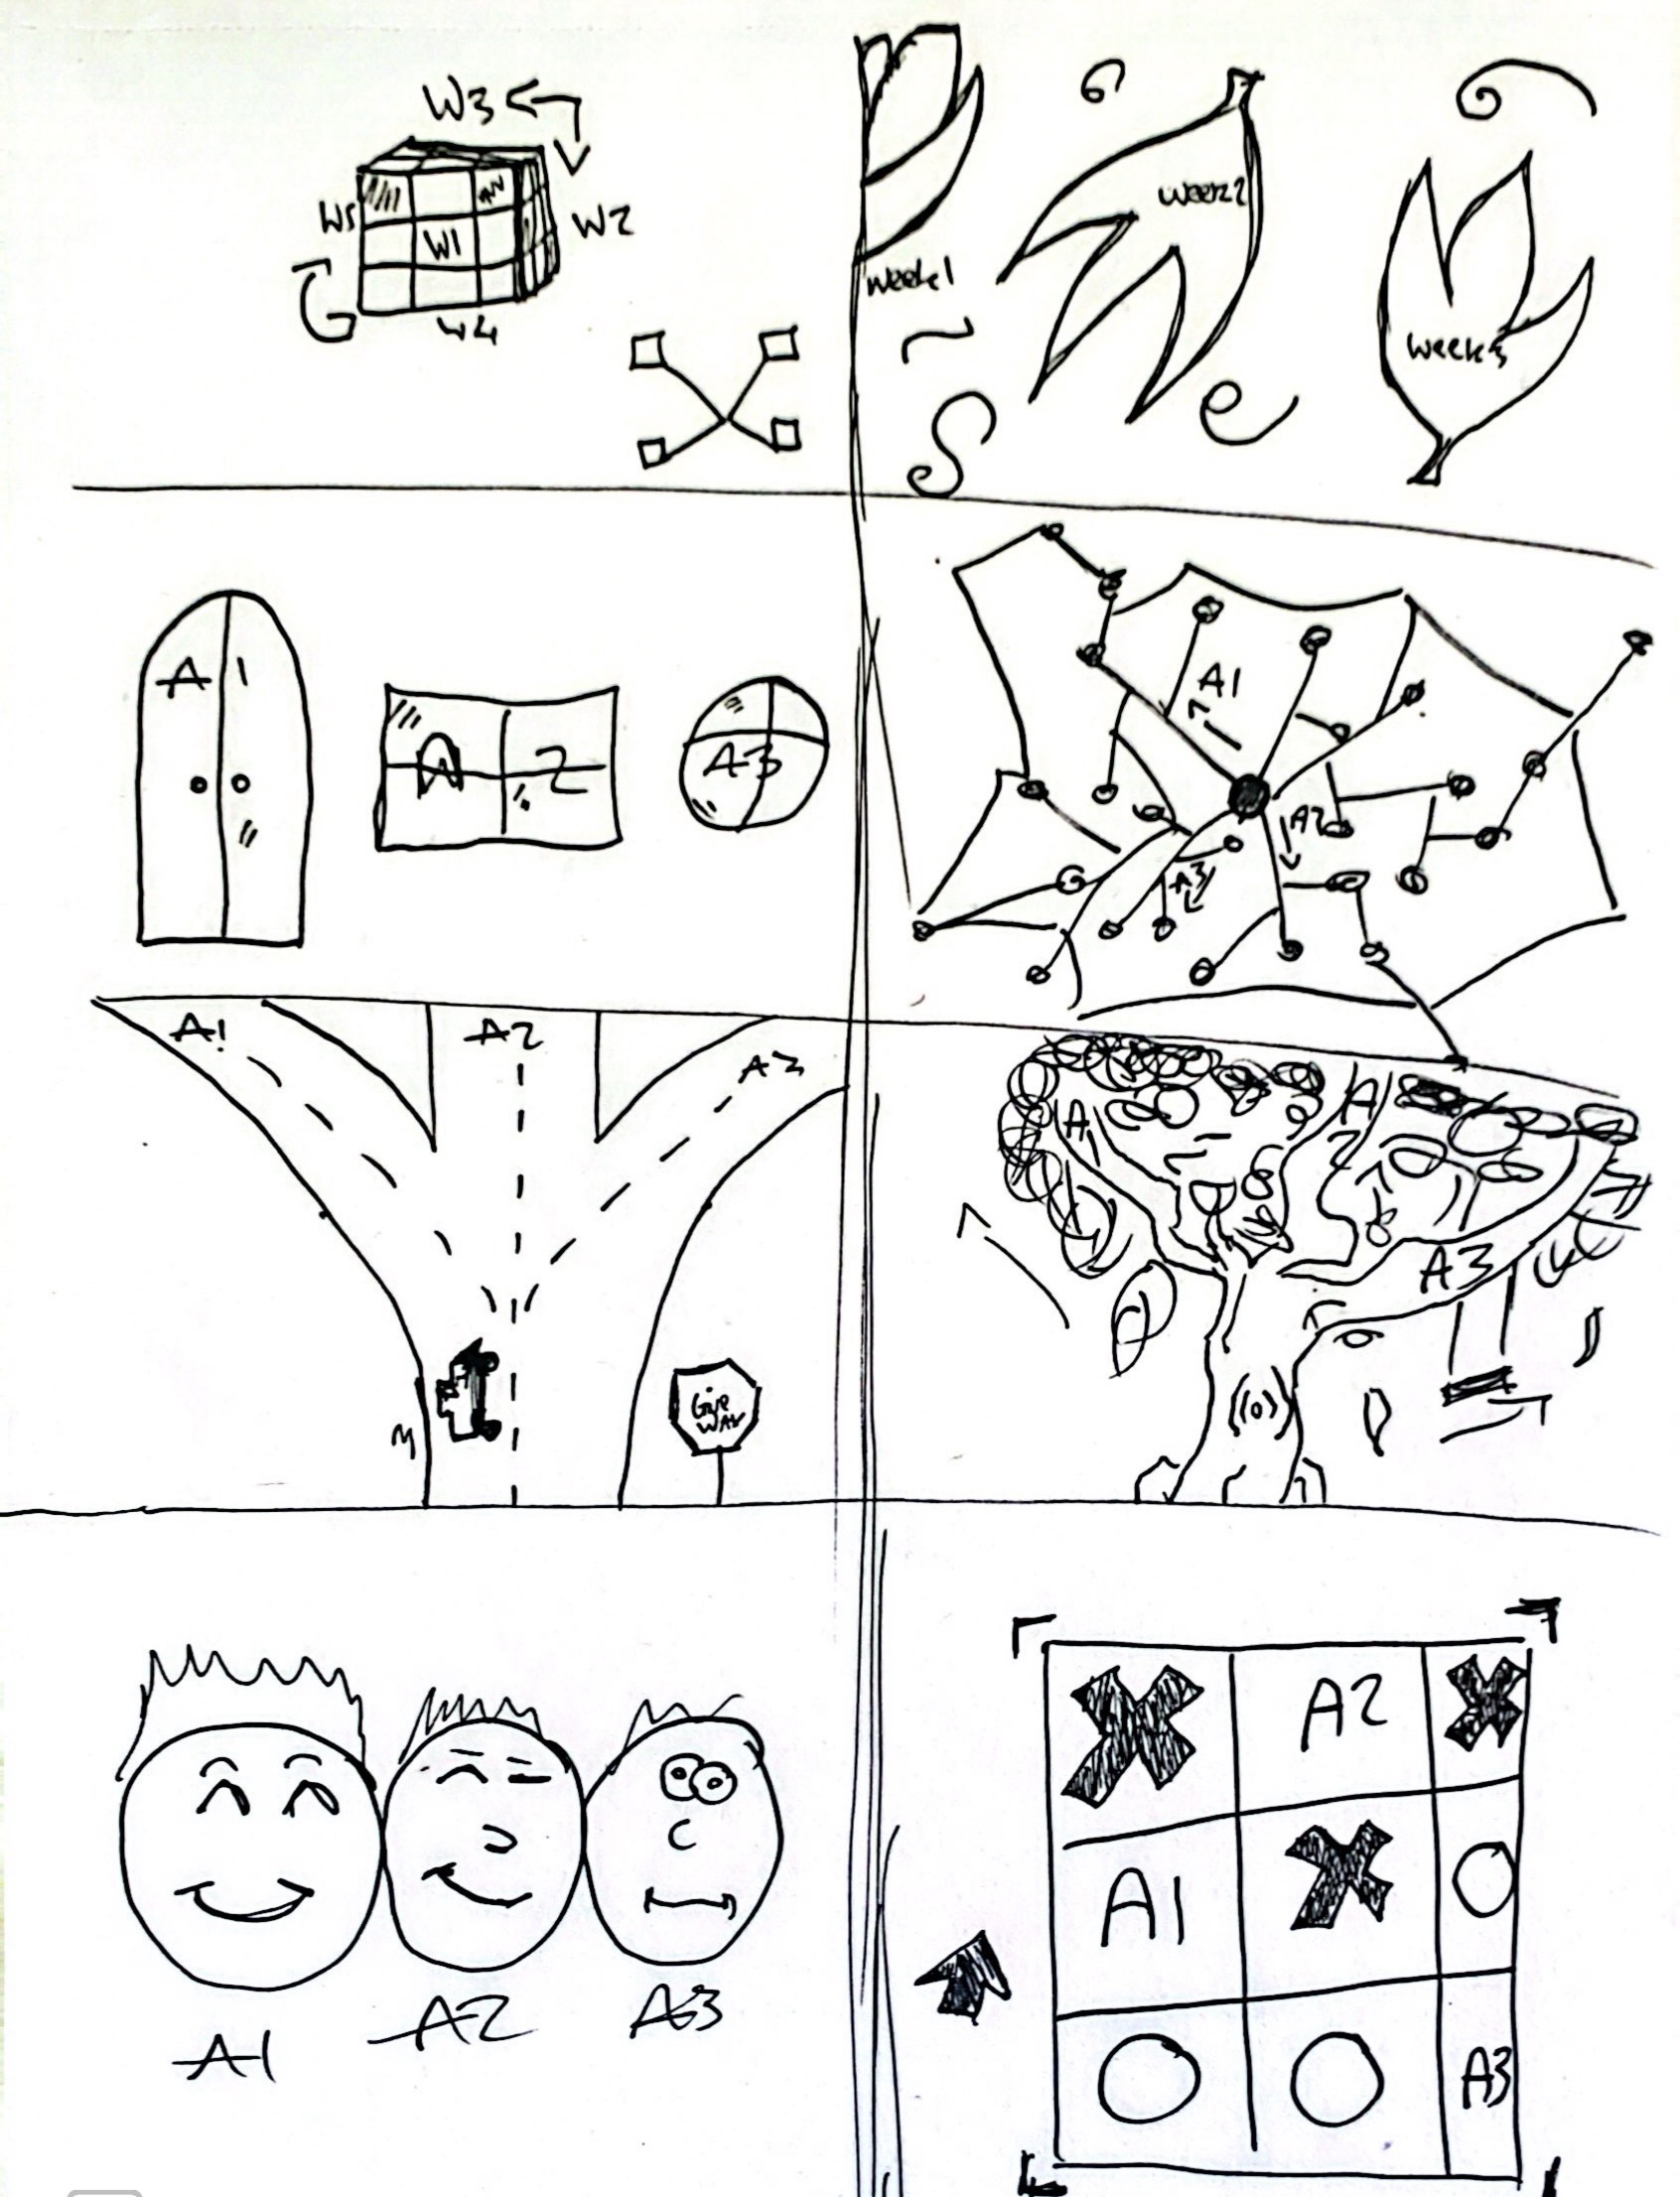 W3
W5
W1
W2
W4
week1
week2
week3
A1
A2
A3
A1
A2
A3
A1
A2
A3
Give
WAY
A1
A2
A3
A1
A2
A3
A2
A1
A3